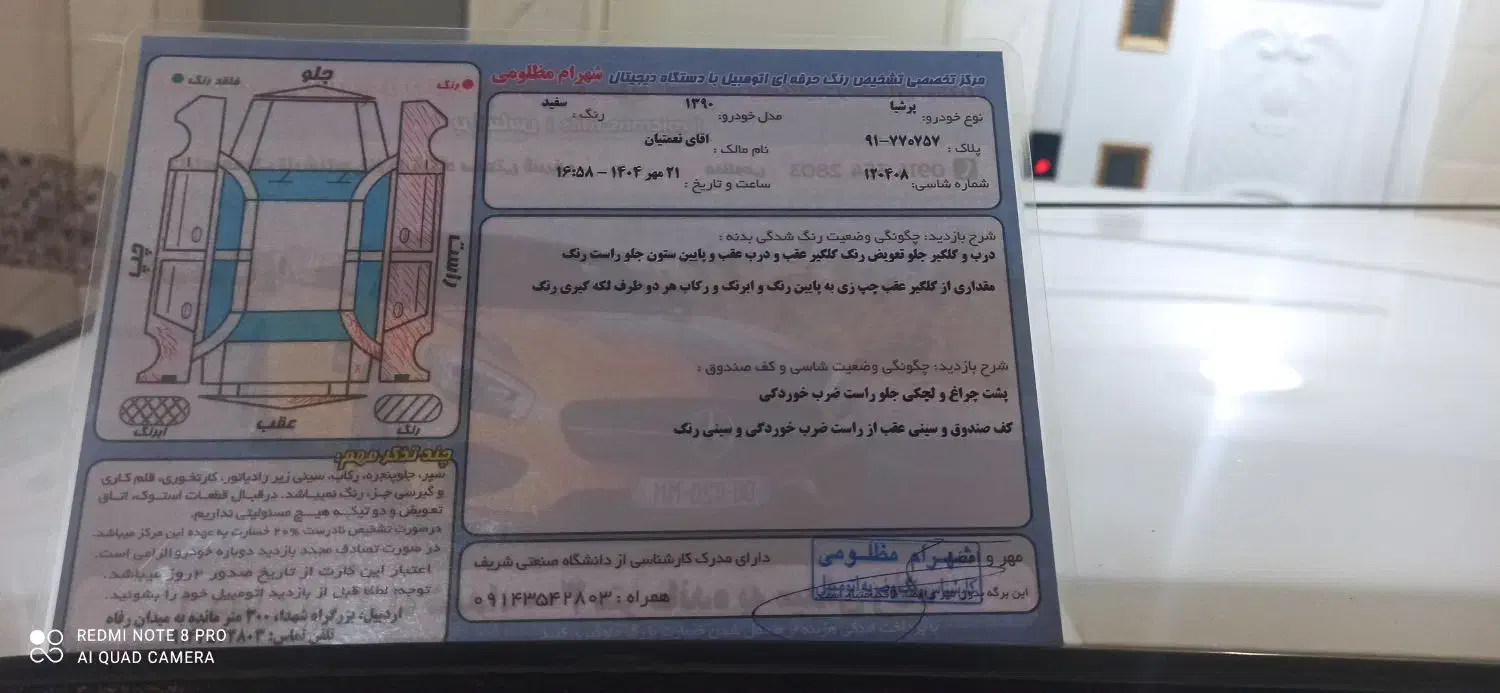 مرکز تخصصی تشخیص رنگ حرفه ای اتومبیل با دستگاه دیجیتال شهرام مظلومی
نوع خودرو: پرشیا مدل خودرو: ۱۳۹۰ رنگ: سفید
پلاک: ۹۱-۷۷۰۷۵۷ نام مالک: اقای نعمتیان
شماره شاسی: ۱۲۰۴۰۸ ساعت و تاریخ: ۲۱ مهر ۱۴۰۴ - ۱۶:۵۸
شرح بازدید: چگونگی وضعیت رنگ شدگی بدنه:
درب و گلگیر جلو تعویض رنگ گلگیر عقب و درب عقب و پایین ستون جلو راست رنگ
مقداری از گلگیر عقب چپ زی به پایین رنگ و ابرنگ و رکاب هر دو طرف لکه گیری رنگ
شرح بازدید: چگونگی وضعیت شاسی و کف صندوق:
پشت چراغ و لچکی جلو راست ضرب خوردگی
کف صندوق و سینی عقب از راست ضرب خوردگی و سینی رنگ
مهر و
شهرام مظلومی
دارای مدرک کارشناسی از دانشگاه صنعتی شریف
این برگه بدون مهر
همراه: ۰۹۱۴۳۵۴۲۸۰۳
رنگ
جلو
فاقد رنگ
راست
چپ
رنگ
عقب
ابرنگ
چند تذکر مهم:
سپر، جلوپنجره، رکاب، سینی زیر رادیاتور، کارتخوری، قلم کاری
و گیرسی جزء رنگ نمیباشد. درقبال قطعات استوک، اتاق
تعویض و دو تیکه هیچ مسئولیتی نداریم.
درصورت تشخیص نادرست ۲۰% خسارت به عهده این مرکز میباشد.
در صورت تصادف مجدد بازدید دوباره خودرو الزامی است.
اعتبار این کارت از تاریخ صدور ۲ روز میباشد.
توجه: لطفا قبل از بازدید اتومبیل خود را بشوئید.
اردبیل، بزرگراه شهداء ۳۰۰ متر مانده به میدان رفاه
تلفن تماس:
REDMI NOTE 8 PRO
AI QUAD CAMERA